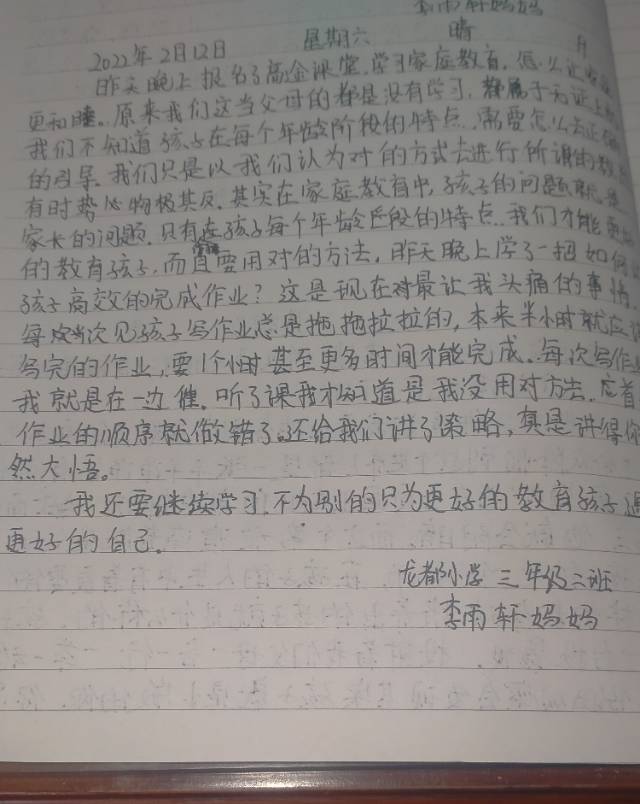 李雨轩妈妈
2022年2月12日 星期六 晴
昨天晚上报名了高金课堂,学习家庭教育,怎么让家庭
更和睦。原来我们这当父母的都是没有学习,都属于无证上
我们不知道孩子在每个年龄阶段的特点,需要怎么去正
的引导。我们只是以我们认为对的方式去进行所谓的教
有时势必物极其反。其实在家庭教育中,孩子的问题就是
家长的问题。只有在孩子每个年龄阶段的特点,我们才能更好
的教育孩子,而且需要用对的方法,昨天晚上学了一招如何
孩子高效的完成作业?这是现在对最让我头痛的事情。
每次当次见孩子写作业总是拖拖拉拉的,本来半小时就应
写完的作业,要1个小时甚至更多时间才能完成。每次写作业
我就是在一边催。听了课我才知道是我没用对方法。应首
作业的顺序就做错了。还给我们讲了策略,真是讲得你
然大悟。
我还要继续学习,不为别的只为更好的教育孩子遇
更好的自己。
龙都小学 三年级二班
李雨轩妈妈